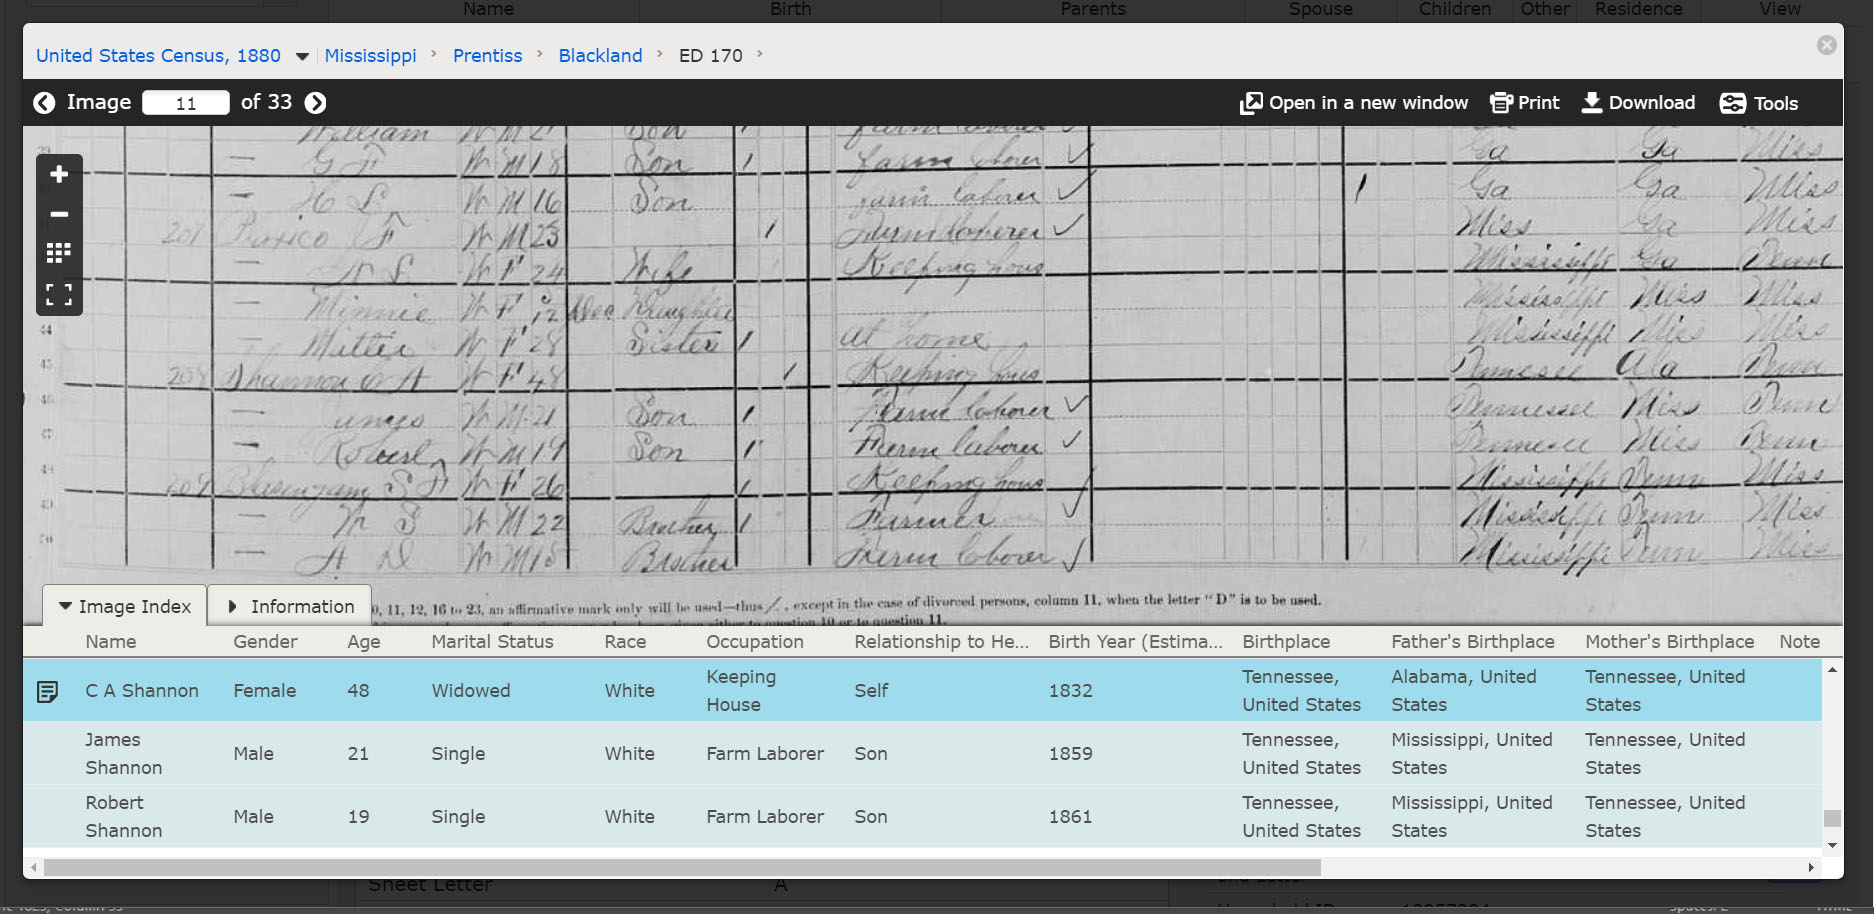 Name Birth Parents Spouse Children Other Residence View
United States Census, 1880 Mississippi › Prentiss › Blackland › ED 170 ›
Image 11 of 33 Open in a new window Print Download Tools
William W M 21 Son 1 farm laborer
39 — G F W M 18 Son 1 farm laborer Ga Ga Miss
— H L W M 16 Son farm laborer 1 Ga Ga Miss
207 F W M 23 1 Farm laborer Miss Ga Miss
— W F 24 Wife Keeping hous Mississippi Ga Tenn
— Minnie W F Dec Daughter Mississippi Miss Miss
44 — Mittie W F 28 Sister 1 at home Mississippi Miss Miss
45 208 Shannon C A W F 48 1 Keeping hous Tennesee Ala Tenn
46 — James W M 21 Son 1 Farm laborer Tennessee Miss Tenn
47 — Robert W M 19 Son 1 Farm laborer Tennesee Miss Tenn
209 W F 26 1 Keeping hous Mississippi Tenn Miss
— W M 22 Brother 1 Farmer Mississippi Tenn Miss
50 — W M 18 Brother Farm laborer Mississippi Tenn Miss
Image Index Information 0, 11, 12, 16 to 23, an affirmative mark only will be used—thus /, except in the case of divorced persons, column 11, when the letter "D" is to be used.
question 10 or to question 11.
Name Gender Age Marital Status Race Occupation Relationship to He... Birth Year (Estima... Birthplace Father's Birthplace Mother's Birthplace Note
C A Shannon Female 48 Widowed White Keeping House Self 1832 Tennessee, United States Alabama, United States Tennessee, United States
James Shannon Male 21 Single White Farm Laborer Son 1859 Tennessee, United States Mississippi, United States Tennessee, United States
Robert Shannon Male 19 Single White Farm Laborer Son 1861 Tennessee, United States Mississippi, United States Tennessee, United States
Sheet Letter A